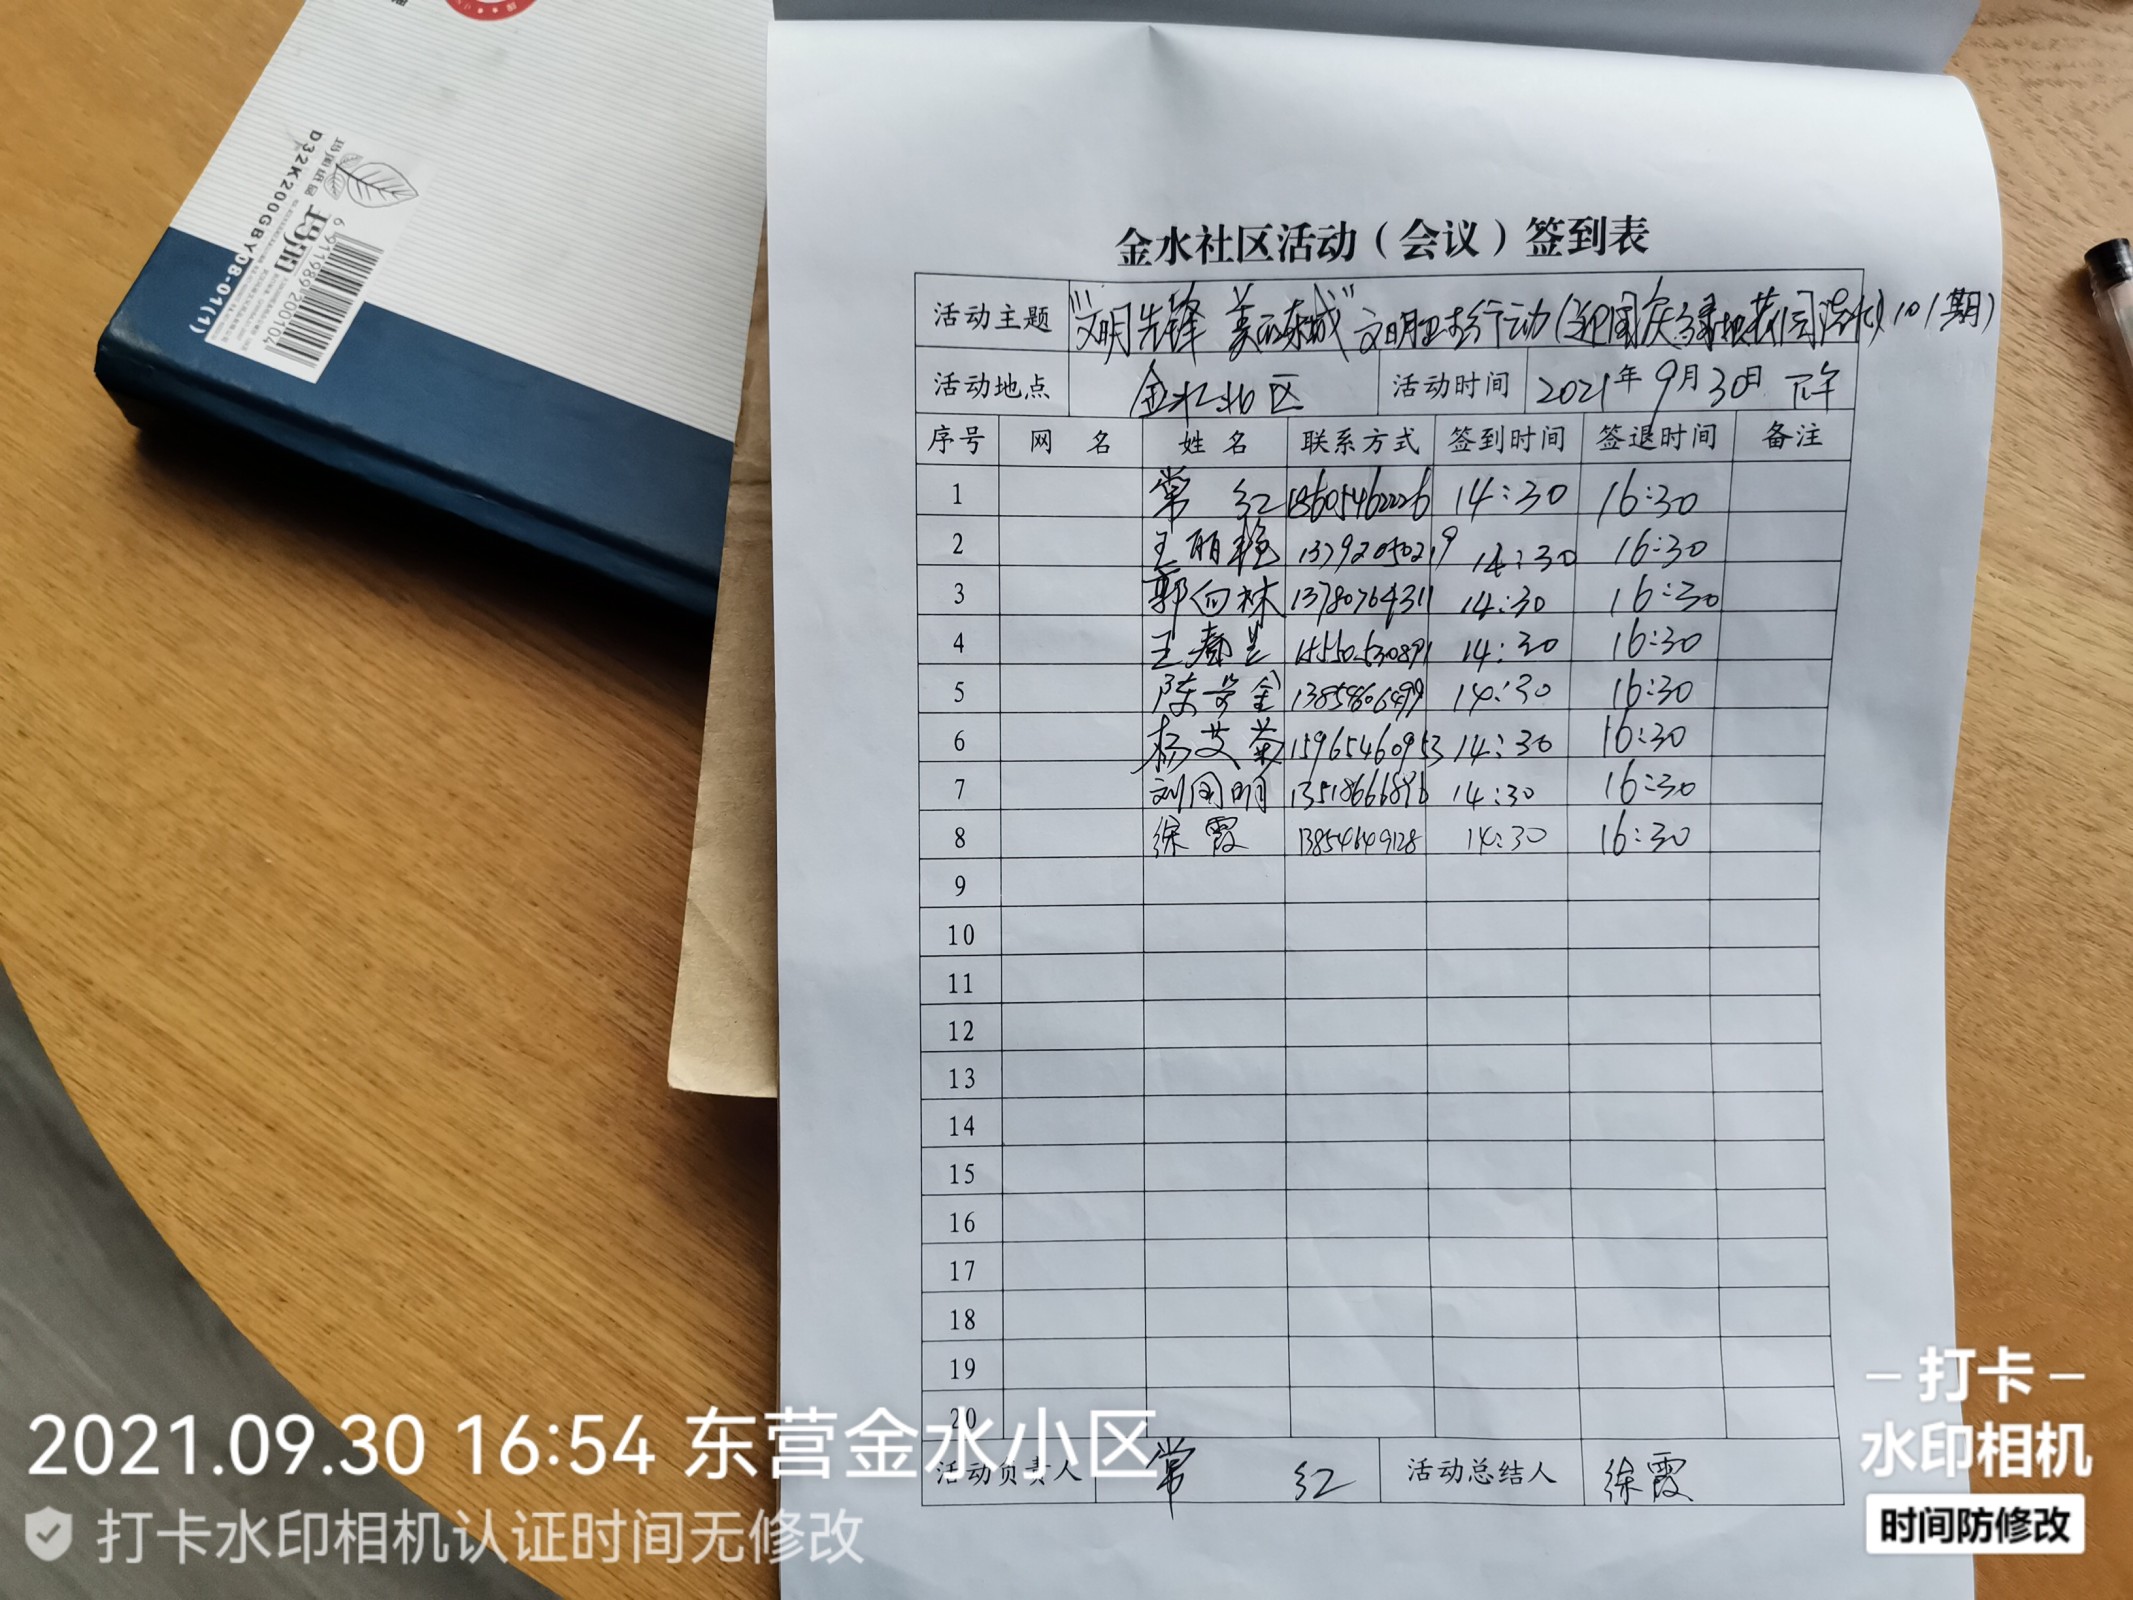 D32K200GBY08-01(1)
玛丽
6 911989 260104
金水社区活动（会议）签到表
活动主题 "文明先锋 美丽东城"文明卫生行动(迎国庆绿地花园清化101期)
活动地点 金水北区 活动时间 2021年9月30日 下午
序号 网 名 姓 名 联系方式 签到时间 签退时间 备注
1 常 红 18605462226 14:30 16:30
2 王丽艳 13792050219 14:30 16:30
3 郭向林 13780764311 14:30 16:30
4 王春兰 14:30 16:30
5 陈 金 14:30 16:30
6 杨艾菊 15965460953 14:30 16:30
7 刘国明 14:30 16:30
8 徐霞 13854649128 14:30 16:30
9
10
11
12
13
14
15
16
17
18
19
20
活动负责人 常 红 活动总结人 徐霞
2021.09.30 16:54 东营金水小区
打卡水印相机认证时间无修改
打卡
水印相机
时间防修改